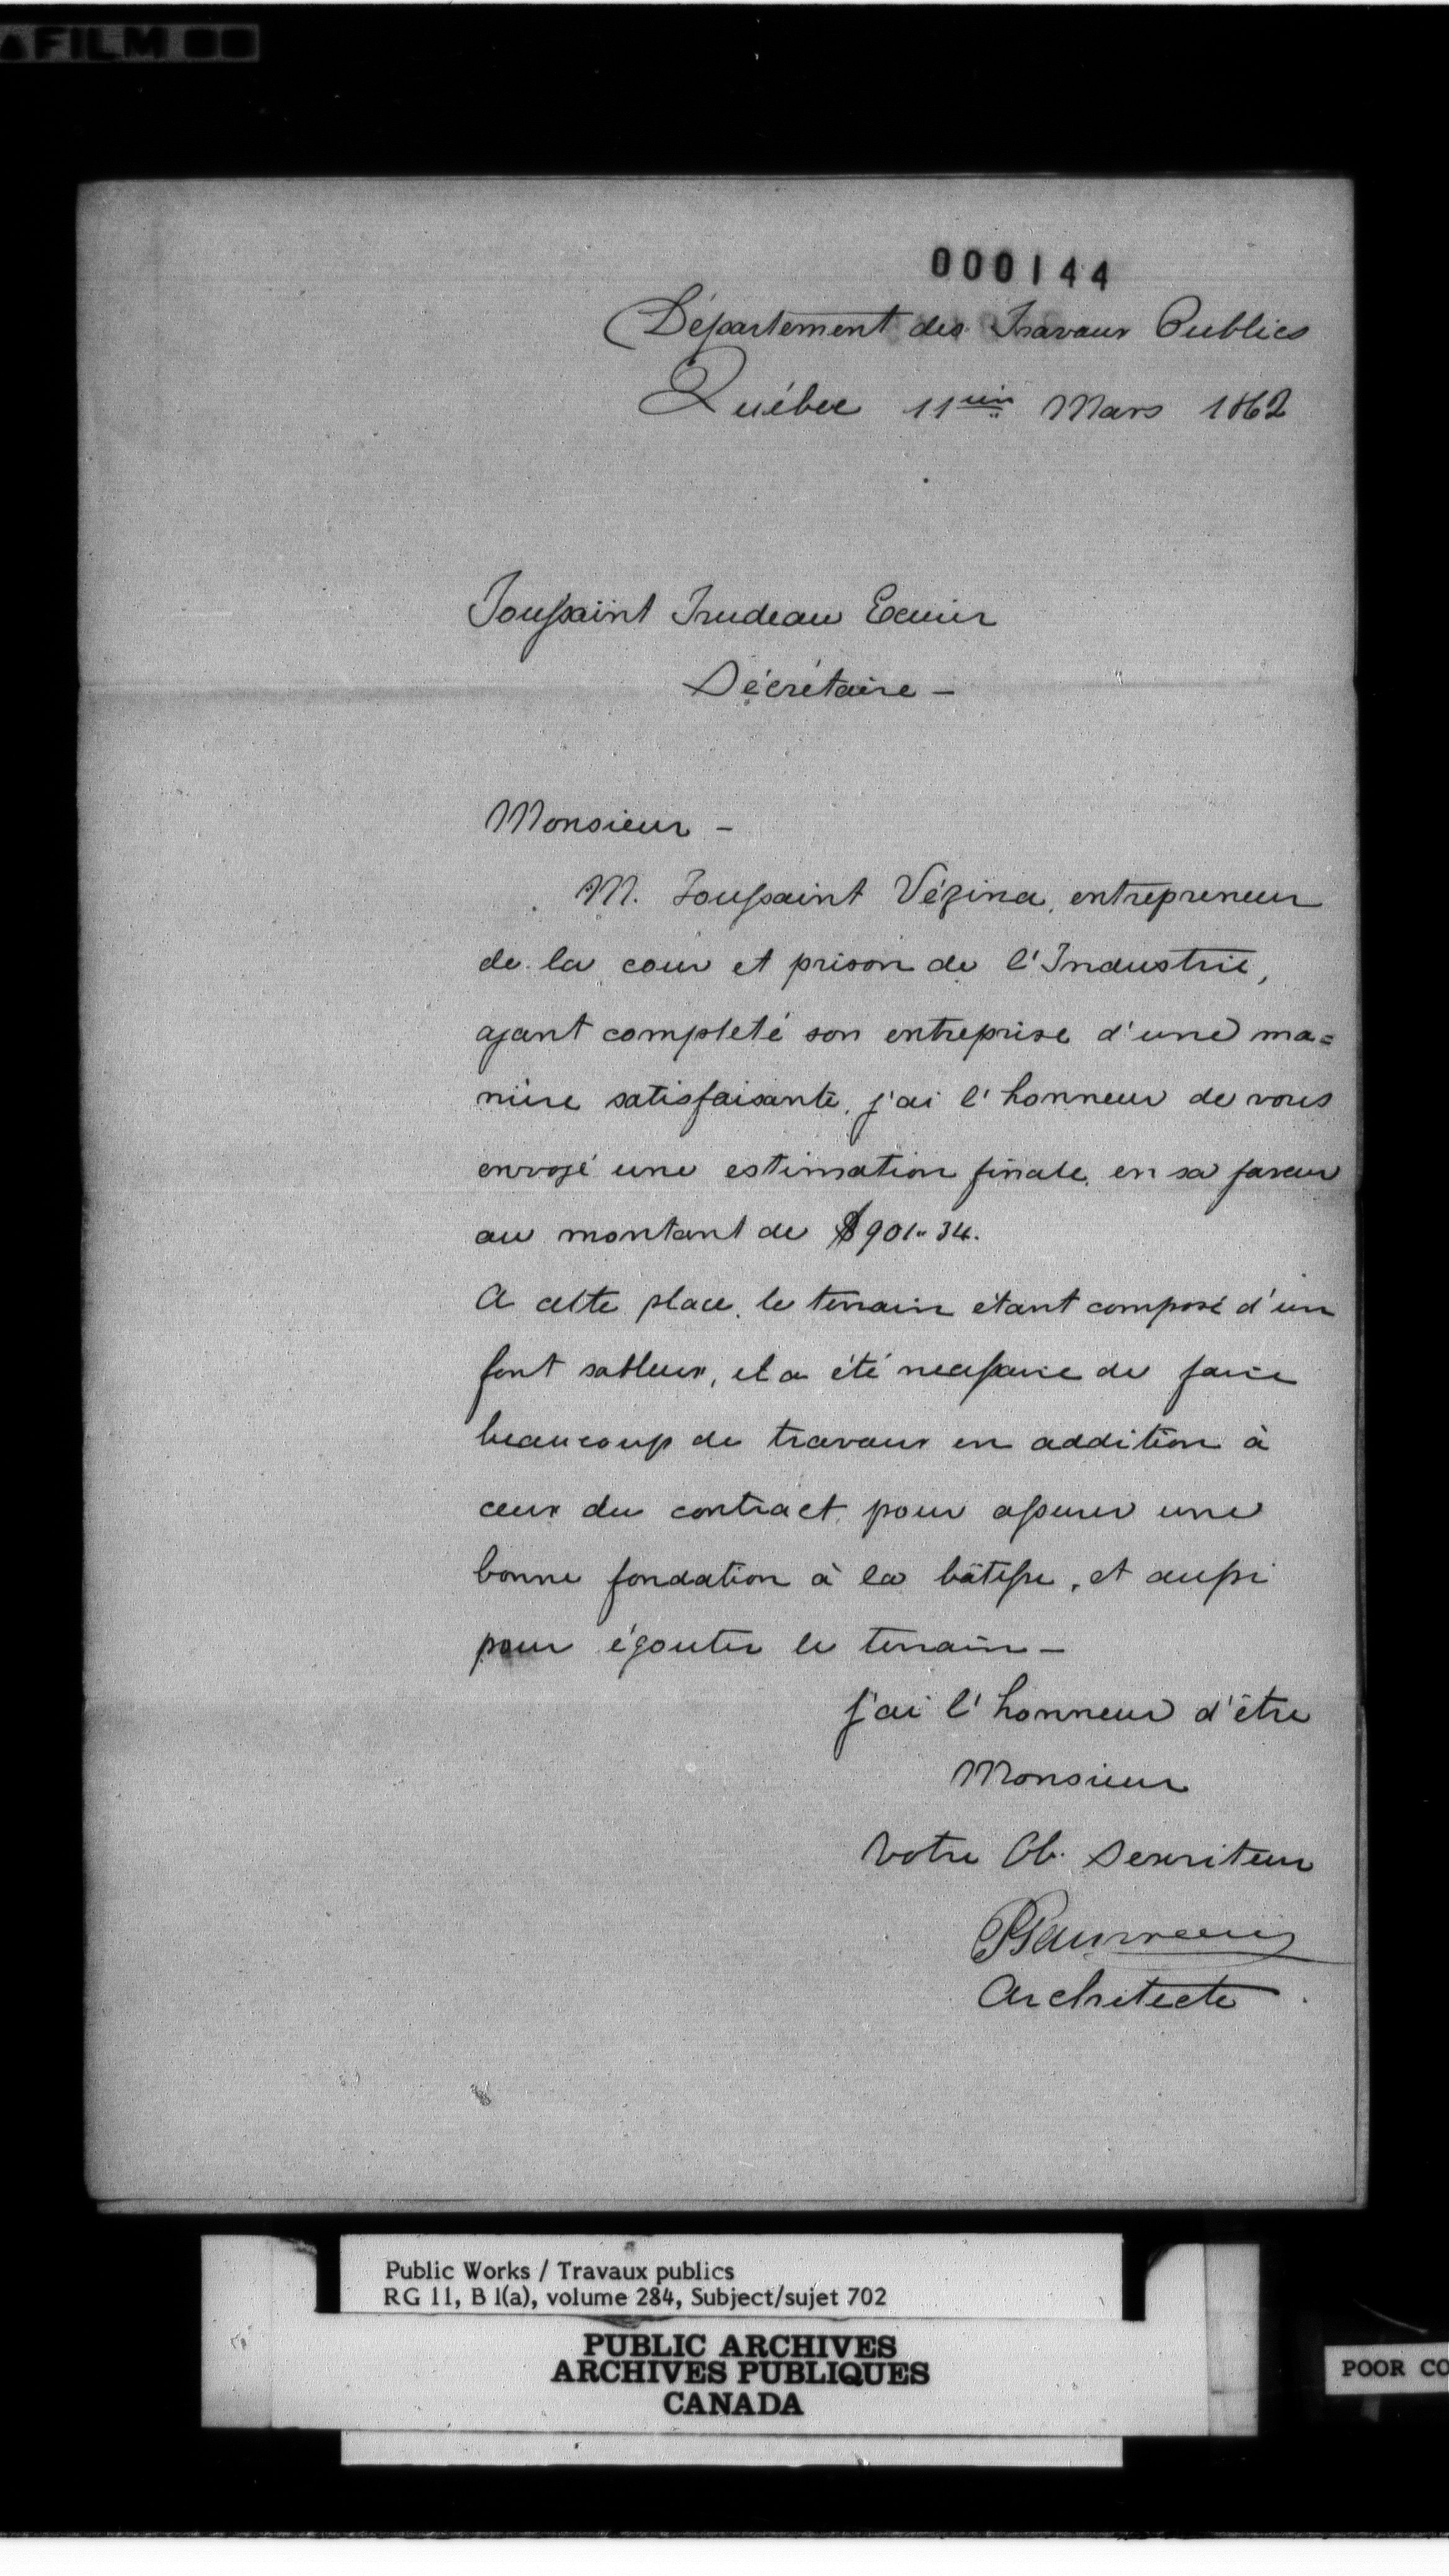 FILM
000144
Département des Travaux Publics
Québec 11ième Mars 1862
Toussaint Trudeau Ecuier
Sécrétaire -
Monsieur -
M. Toussaint Vézina, entrepreneur
de la cour et prison de l'Industrie,
ayant completé son entreprise d'une ma=
nière satisfaisante, j'ai l'honneur de vous
envoyé une estimation finale, en sa faveur
au montant de $901.. 34.
A cette place, le terrain etant composé d'un
font sableux, il a été necessaire de faire
beaucoup de travaux en addition à
ceux du contract, pour assurer une
bonne fondation à la bâtisse, et aussi
pour égouter le terrain -
j'ai l'honneur d'être
Monsieur
Votre Ob. Serviteur
PGauvreau
Architecte
Public Works / Travaux publics
RG 11, B 1(a), volume 284, Subject/sujet 702
PUBLIC ARCHIVES
ARCHIVES PUBLIQUES
CANADA
POOR CO